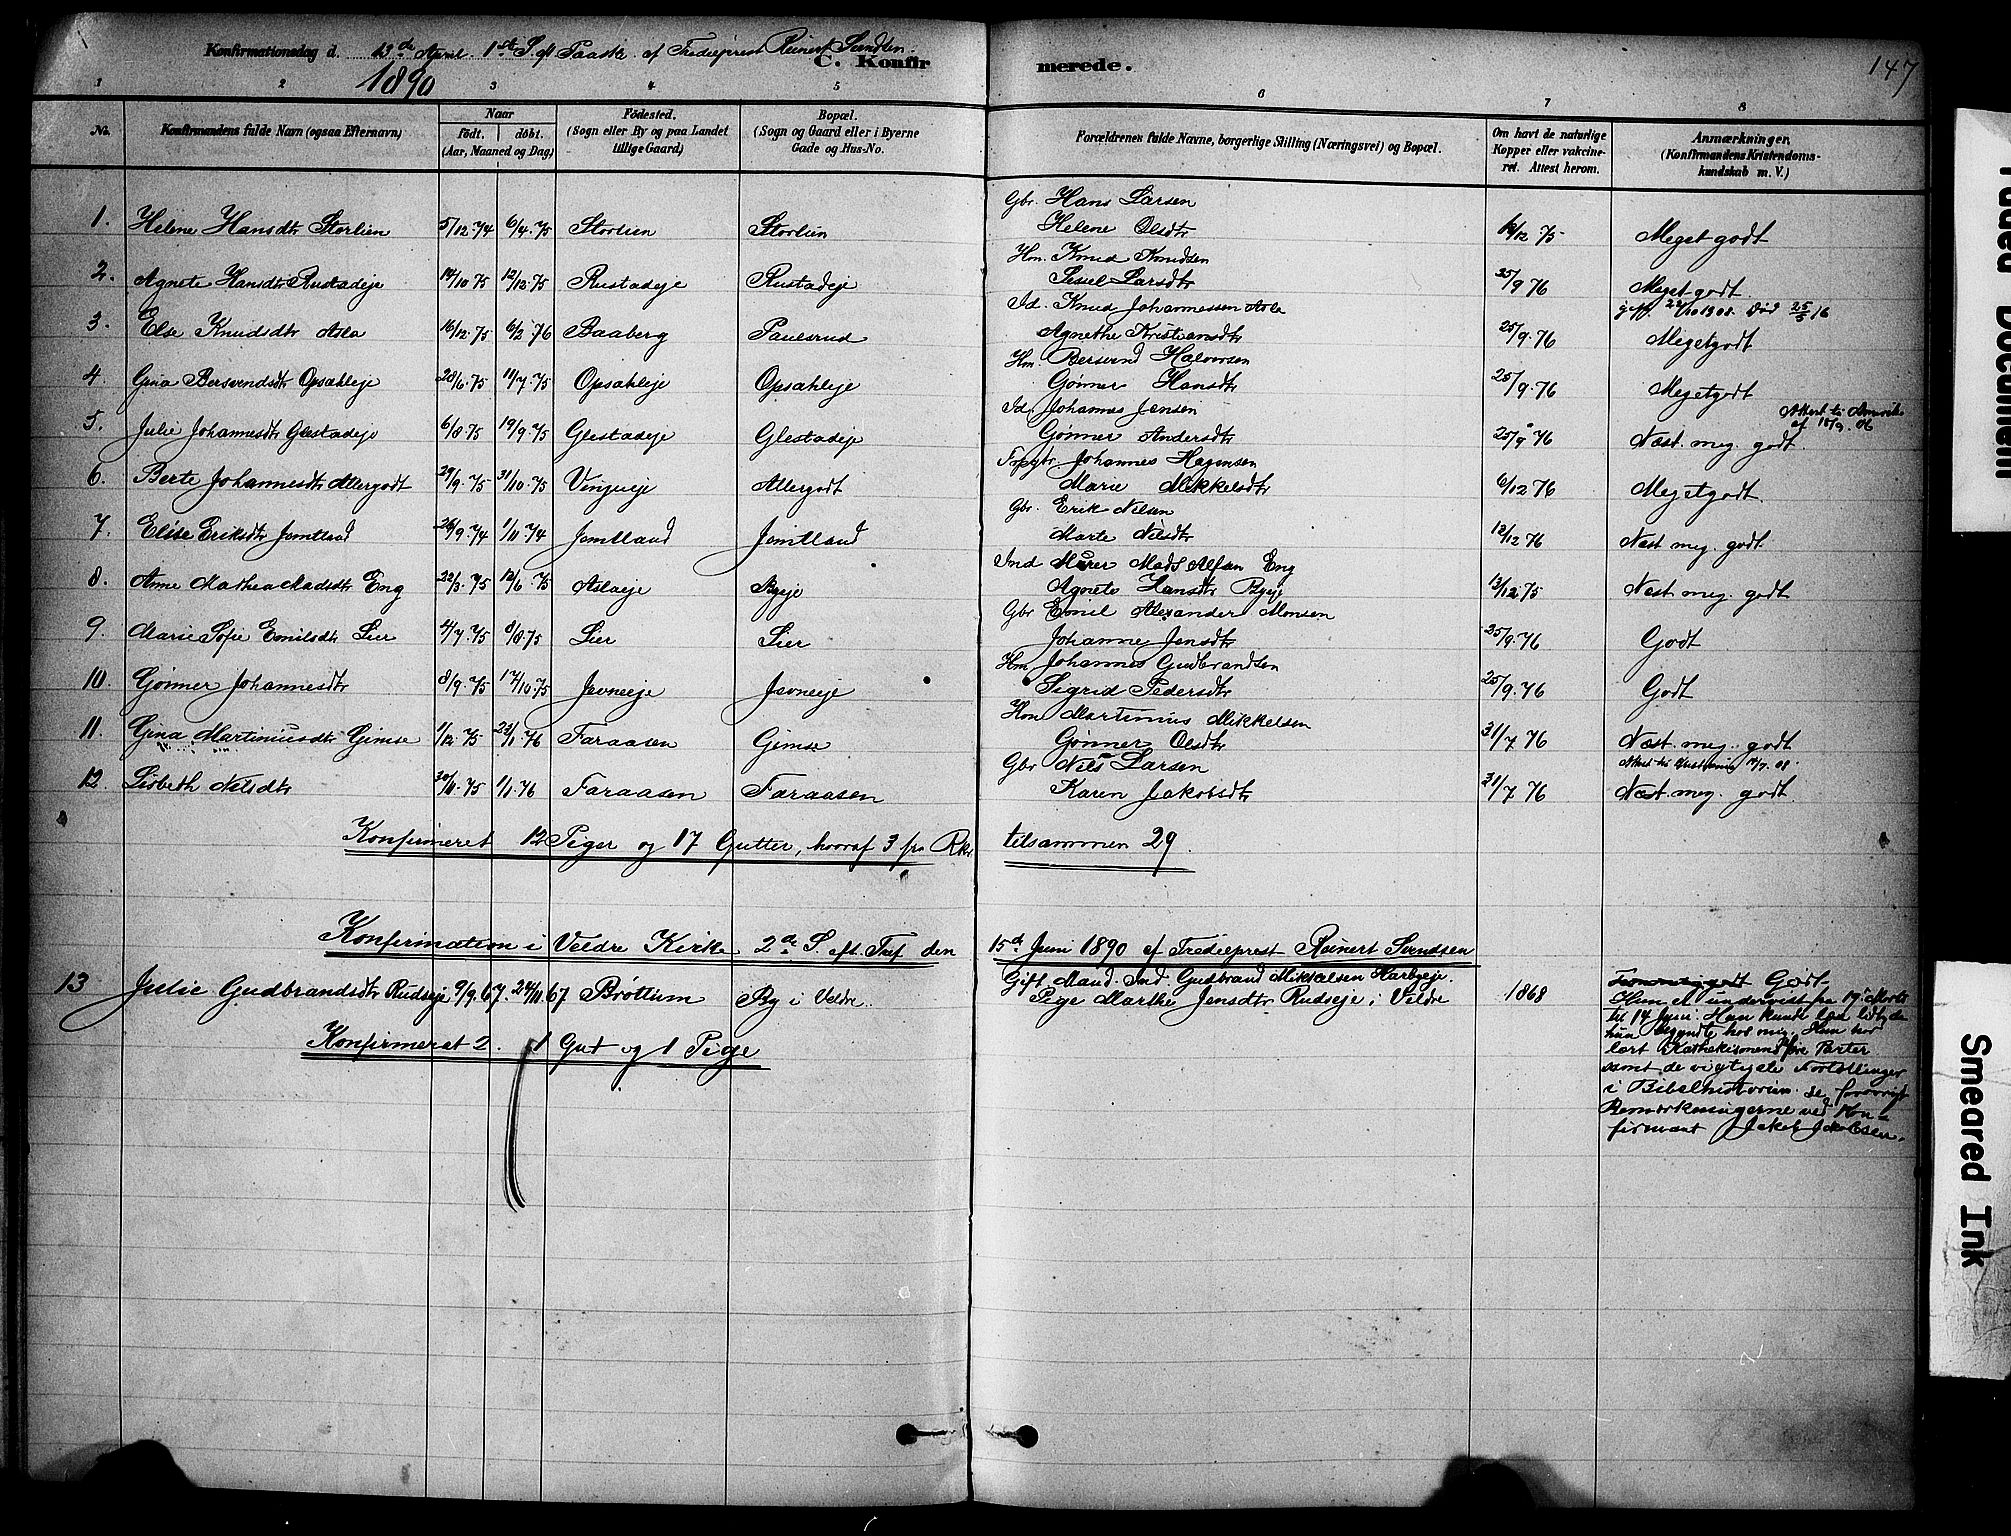 Konfirmationsdag d. 13de April 1ste S. eft Paaske af Trediepræst Reinert Svendsen.
1890
C. Konfirmerede.
147
1 2 3 4 5 6 7 8
No. Konfirmandens fulde Navn (ogsaa Efternavn) Naar Født. døbt. (Aar, Maaned og Dag) Fødested. (Sogn eller By og paa Landet tillige Gaard) Bopæl. (Sogn og Gaard eller i Byerne Gade og Hus-No. Forældrenes fulde Navne, borgerlige Stilling (Næringsvei) og Bopæl. Om havt de naturlige Kopper eller vakcineret. Attest herom. Anmærkninger. (Konfirmandens Kristendomskundskab m. V.)
Gbr. Hans Larsen
1. Helene Hansdtr Storlien 5/12.74 6/4.75 Storlien Storlien Helene Olsdtr 14/12 75 Meget godt
Hm. Knud Knudsen
2. Agnete Hansdtr Rustadeje 14/10 75 12/12.75 Rustadeje Rustadeje Sissel Larsdtr 25/9 76 Meget godt
Id. Knud Johannessen Asla gift 22/10 1908. Død 25/5 16
3. Else Knudsdtr Asla 16/12.75 6/2.76 Baaberg Paulsrud Agnethe Kristiansdtr 25/9.76 Megetgodt
Hm. Bersvend Halvorsen
4. Gina Bersvendsdtr Opsahleje 28/6.75 11/7.75 Opsahleje Opsahleje Gønner Hansdtr 25/9.76 Megetgodt
Id. Johannes Jensen Attest til Amerika af 18/9. 06
5. Julie Johannesdtr Glestadeje 6/8 75 19/9.75 Glestadeje Glestadeje Gønner Andersdtr 25/9 76 Næst meg. godt.
Johannes Hagensen
6. Berte Johannesdtr Allergodt 29/9.75 31/10.75 Allergodt Marie Mikkelsdtr 6/12 76 Megetgodt.
Gbr. Erik Nilsen
7. Elise Eriksdtr Jomtland 26/9.74 1/11.74 Jomtland Jomtland Marte Nilsdtr 12/12 76 Næst meg. godt.
Ind Murer Mads Alfsen Eng
8. Anne Mathea Madsdtr Eng 22/3.75 12/6.75 Aslaeje Byeje Agnete Hansdtr Byeje 13/12 75 Næst meg. godt
Gbr Emil Alexander Monsen
9. Marie Sofie Emilsdtr Lier 4/7.75 8/8.75 Lier Lier Johanne Jensdtr 25/9.76 Godt
Hm. Johannes Gudbrandsen
10. Gønner Johannesdtr 8/9.75 17/10.75 Jevneeje Jevneeje Sigrid Pedersdtr 25/9.76 Godt
Hm Martinius Mikkelsen
11. Gina Martiniusdtr Gimse 1/12.75 23/1 76 Faraasen Gimse Gønner Olsdtr 31/7 76 Næst. meg. godt
Gbr Nils Larsen Attest til 08.
12. Lisbeth Nilsdtr 30/11.75 1/1.76 Faraasen Faraasen Karen Jakobsdtr 31/7 76 Næst meg. godt.
Konfirmeret 12 Piger og 17 Gutter, hvoraf 3 fra Rks tilsammen 29.
Konfirmation i Veldre Kirke 2de S. eft. Tref den 15de Juni 1890 af Trediepræst Reinert Svendsen
Gift Mand Ind. Gudbrand Mikkelsen Harbyeje.
13 Julie Gudbrandsdtr Rudseje 9/9.67. 24/11.67 Brøttum By i Veldre. Pige Marthe Jensdtr Rudseje i Veldre 1868 Godt
Hun er undervist fra 17de Marts
til 14 Juni. Hun kunde saa lidt, da
hun begyndte hos mig. Hun har
lært Katekismens fire Parter
samt de vigtigste Fortællinger
i Bibelhistorien. se forøvrigt
Bemærkningerne ved Kon-
firmant Jakob Jakobsen.
Konfirmeret 2. 1 Gut og 1 Pige
Faded Document
Smeared Ink